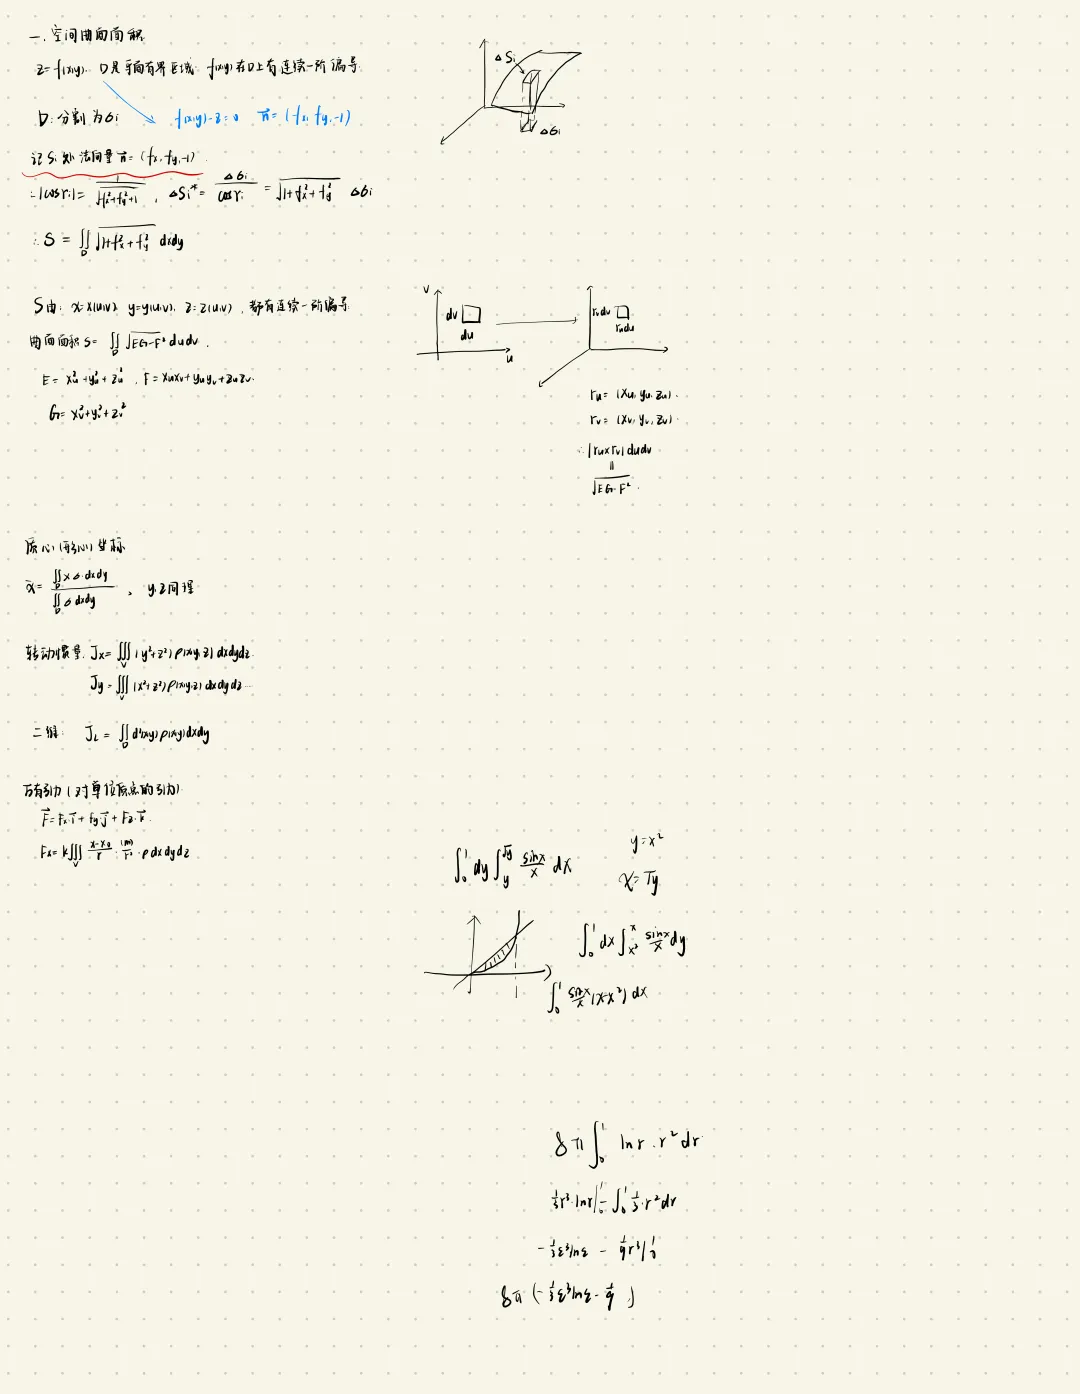 一. 空间曲面面积
z=f(x,y). D是平面有界区域 f(x,y)在D上有连续一阶偏导
D: 分割为σi f(x,y)-z=0 n⃗=(fx, fy, -1)
记Si处法向量n⃗=(fx, fy, -1).
∴|cosγi|= 1/√(fx²+fy²+1) , ΔSi*= Δσi/cosγi = √(1+fx²+fy²) Δσi
∴S = ∬_D √(1+fx²+fy²) dxdy
ΔSi
Δσi
S由: x=x(u,v) y=y(u,v). z=z(u,v) , 都有连续一阶偏导
曲面面积S= ∬_D √(EG-F²) dudv.
E= xu²+yu²+zu² , F=xuxv+yuyv+zuzv.
G=xv²+yv²+zv²
v
dv
du
u
rvdv
rudu
ru= (xu, yu, zu).
rv= (xv, yv, zv).
∴|ru×rv|dudv
॥
√(EG-F²).
质心(形心)坐标
x̄= ∬_D xσ·dxdy / ∬_D σdxdy , y.z同理
转动惯量. Jx= ∭_V (y²+z²)ρ(x,y,z)dxdydz
Jy=∭_V (x²+z²)ρ(x,y,z)dxdydz
二维: JL = ∬_D d²(x,y)ρ(x,y)dxdy
万有引力(对单位质点的引力)
F⃗=Fx·i⃗+Fy·j⃗+Fz·k⃗
Fx=k∭_V (x-x0)/r · (m)/r² ·ρdxdydz
∫₀¹ dy∫_y^√y sinx/x dx
y=x²
x=√y
∫₀¹ dx∫_x²^x sinx/x dy
∫₀¹ sinx/x (x-x²) dx
8π∫₀¹ lnr·r²dr
⅓r³·lnr|₀¹ - ∫₀¹ ⅓·r²dr
-⅓ε³lnε - 1/9 r³|₀¹
8π(-⅓ε³lnε-1/9)